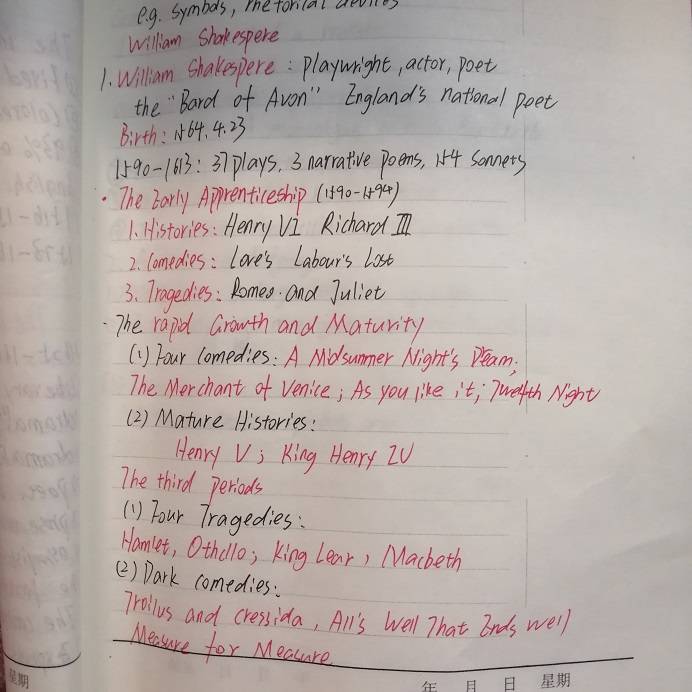 e.g. symbols, rhetorical devices
William Shakespere
1. William Shakespere : playwright, actor, poet
the "Bard of Avon" England's national poet
Birth: 1564.4.23
1590-1613: 37 plays, 3 narrative poems, 154 sonnets
· The Early Apprenticeship (1590-1594)
1. Histories: Henry VI Richard III
2. Comedies: Love's Labour's Lost
3. Tragedies: Romeo and Juliet
· The rapid Growth and Maturity
(1) Four comedies: A Midsummer Night's Dream;
The Merchant of Venice; As you like it; Twelfth Night
(2) Mature Histories:
Henry V; King Henry IV
The third periods
(1) Four Tragedies:
Hamlet, Othello; King Lear, Macbeth
(2) Dark comedies:
Troilus and Cressida, All's Well That Ends Well
Measure for Measure
星期
年 月 日 星期